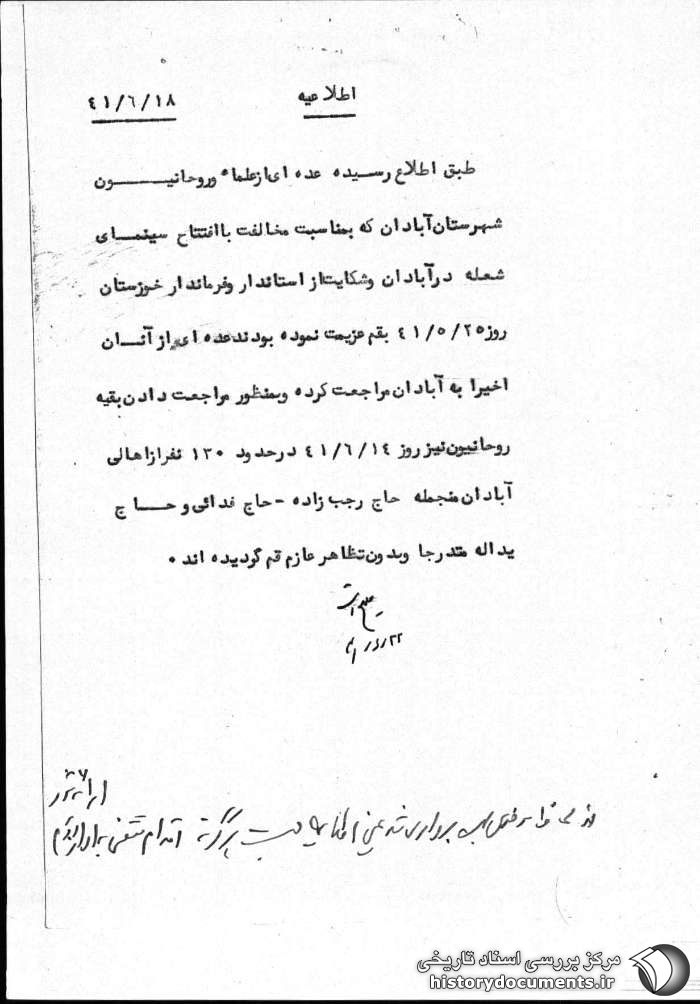 اطلاعیه
۴۱/۶/۱۸
طبق اطلاع رسیده عده ای از علماء و روحانیون
شهرستان آبادان که بمناسبت مخالفت با افتتاح سینمای
شعله در آبادان وشکایت از استاندار وفرماندار خوزستان
روز ۴۱/۵/۲۵ بقم عزیمت نموده بودند عده ای از آنان
اخیرا به آبادان مراجعت کرده وبمنظور مراجعت دادن بقیه
روحانیون نیز روز ۴۱/۶/۱۴ در حدود ۱۳۰ نفر از اهالی
آبادان منجمله حاج رجب زاده - حاج فدائی و حاج
یداله متدرجا وبدون تظاهر عازم قم گردیده اند ۰
اقدام
مرکز بررسی اسناد تاریخی
historydocuments.ir